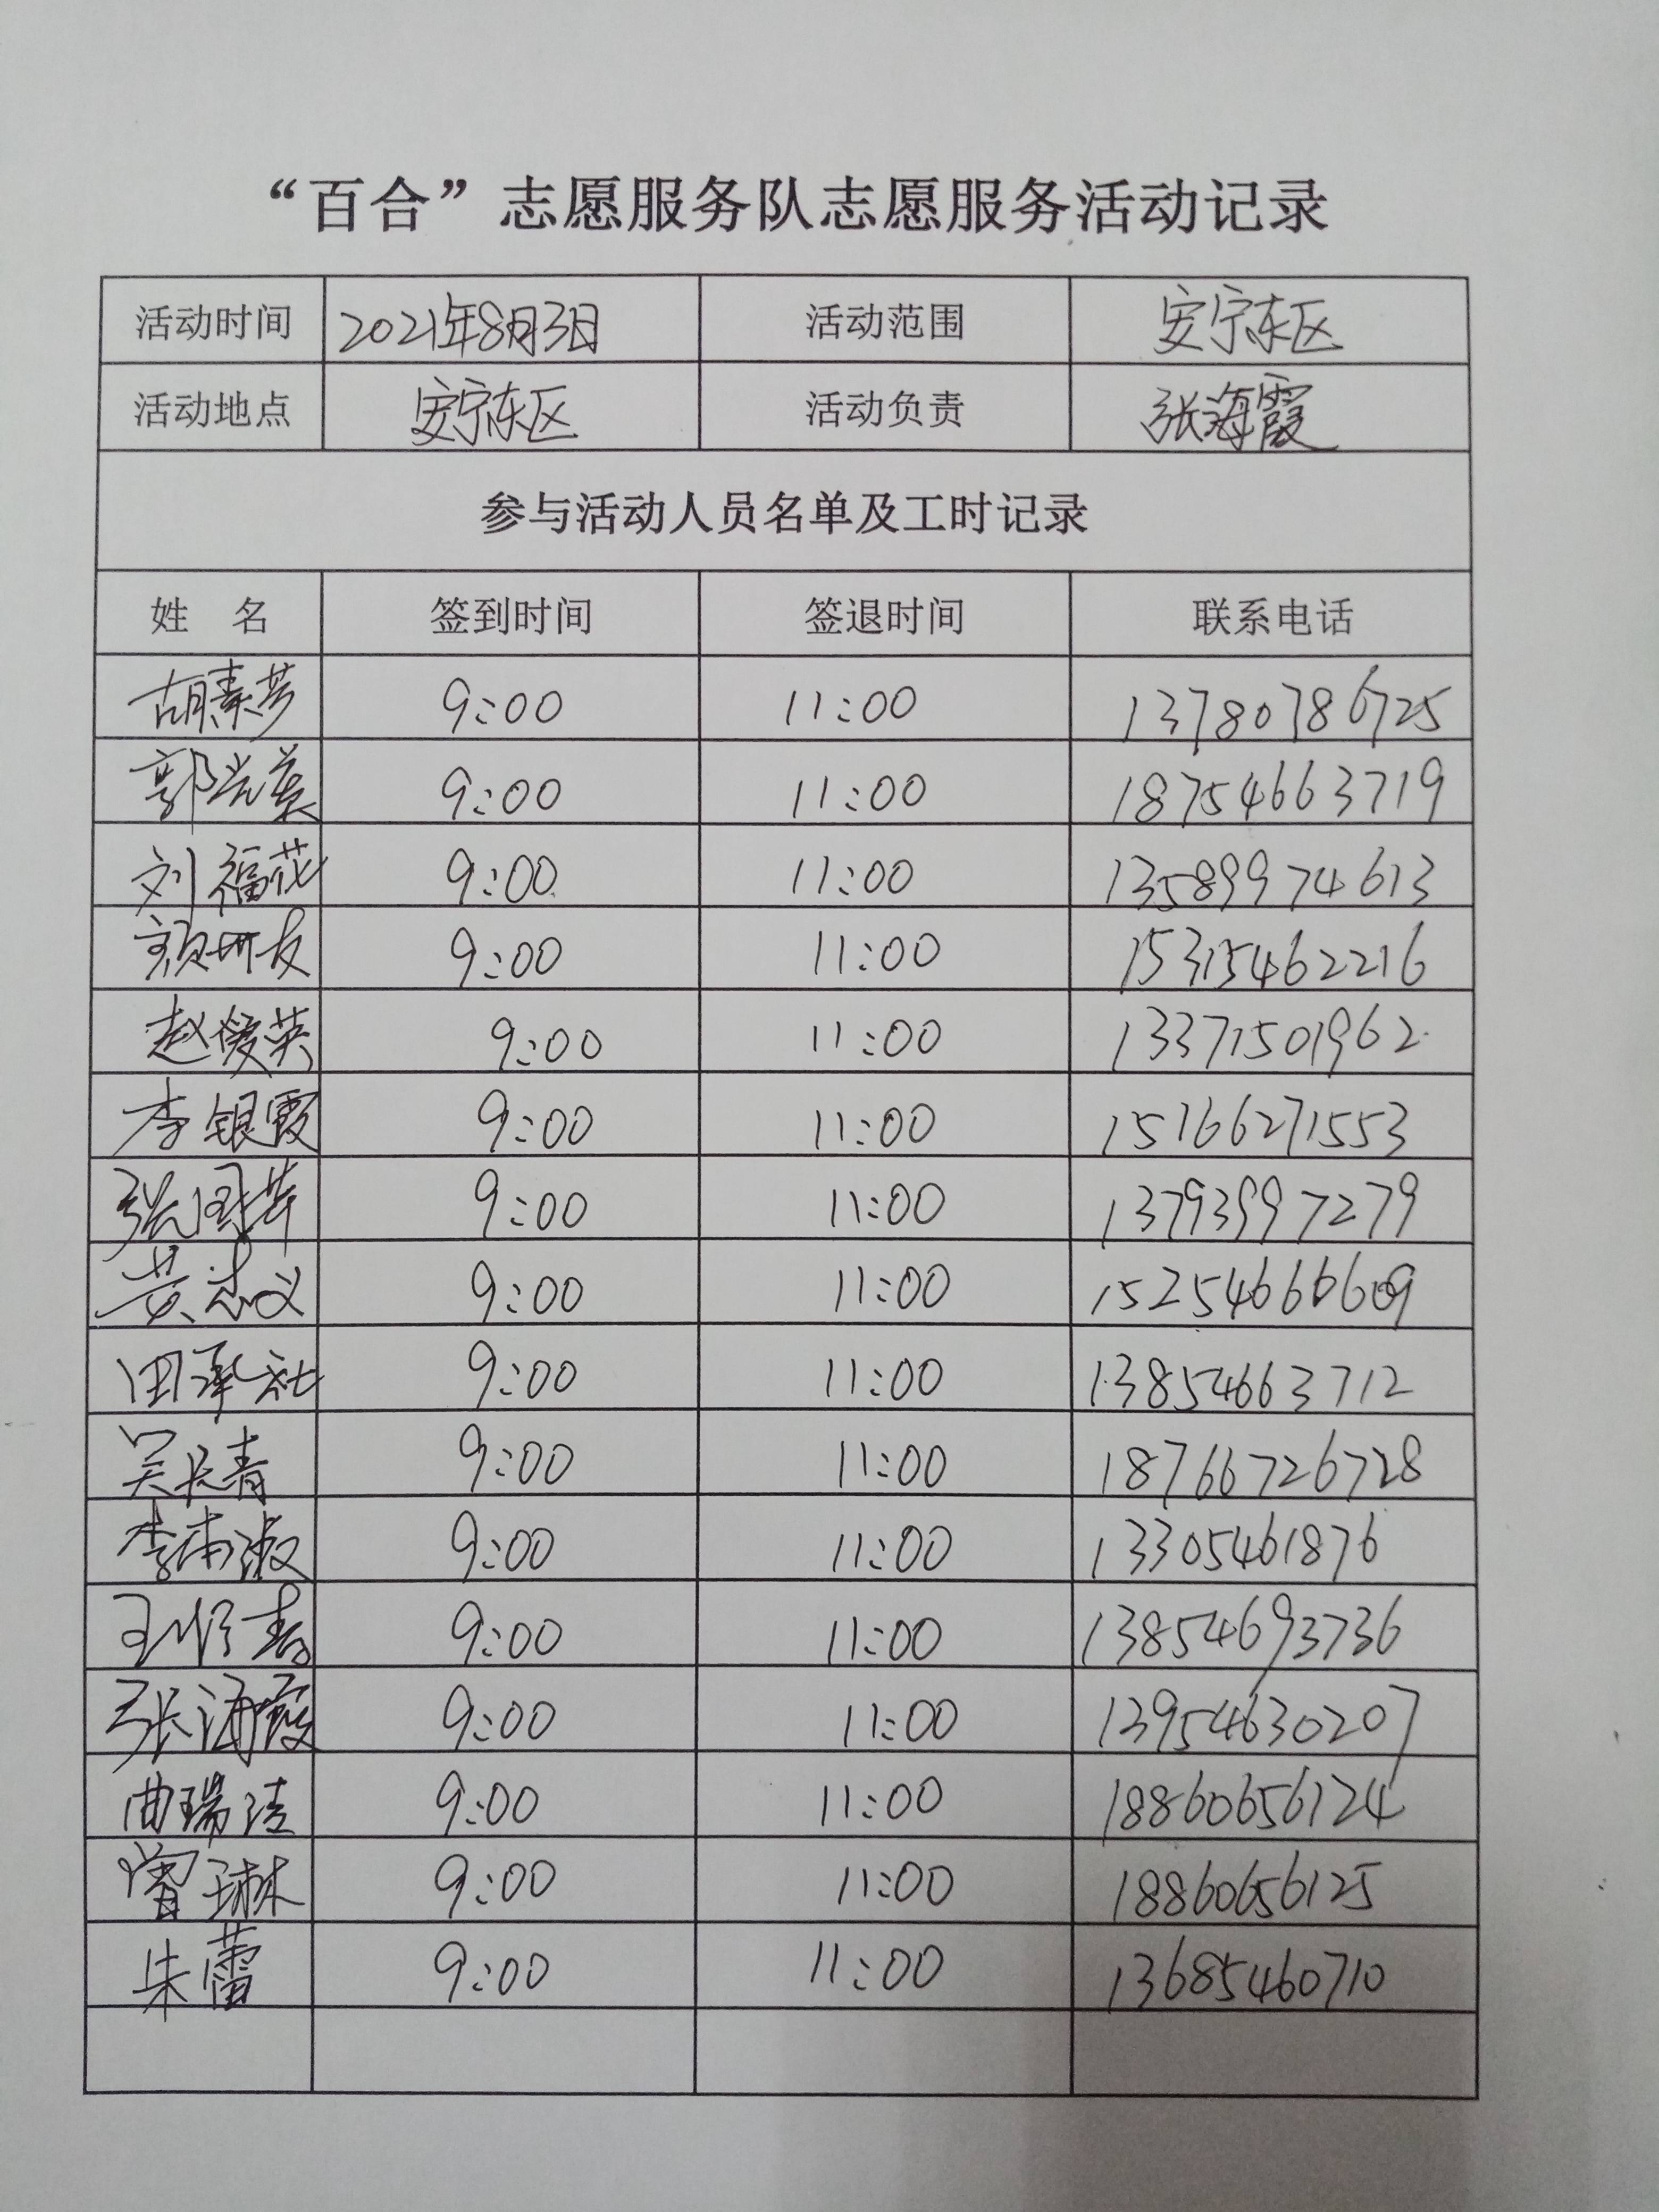 “百合”志愿服务队志愿服务活动记录
活动时间 2021年8月3日 活动范围 安宁东区
活动地点 安宁东区 活动负责 张海霞
参与活动人员名单及工时记录
姓 名 签到时间 签退时间 联系电话
胡素芳 9:00 11:00 13780786725
郭兰英 9:00 11:00 18754663719
刘福花 9:00 11:00 13589974613
9:00 11:00 15315462216
赵俊英 9:00 11:00 13371501962
李银霞 9:00 11:00 15166271553
9:00 11:00 13793997279
黄忠义 9:00 11:00 15254666609
田承社 9:00 11:00 13854663712
吴长青 9:00 11:00 18766726728
9:00 11:00 13305461876
9:00 11:00 13854693736
张海霞 9:00 11:00 13954630207
曲瑞洁 9:00 11:00 18860656124
曾琳 9:00 11:00 18860656125
朱蕾 9:00 11:00 13685460710